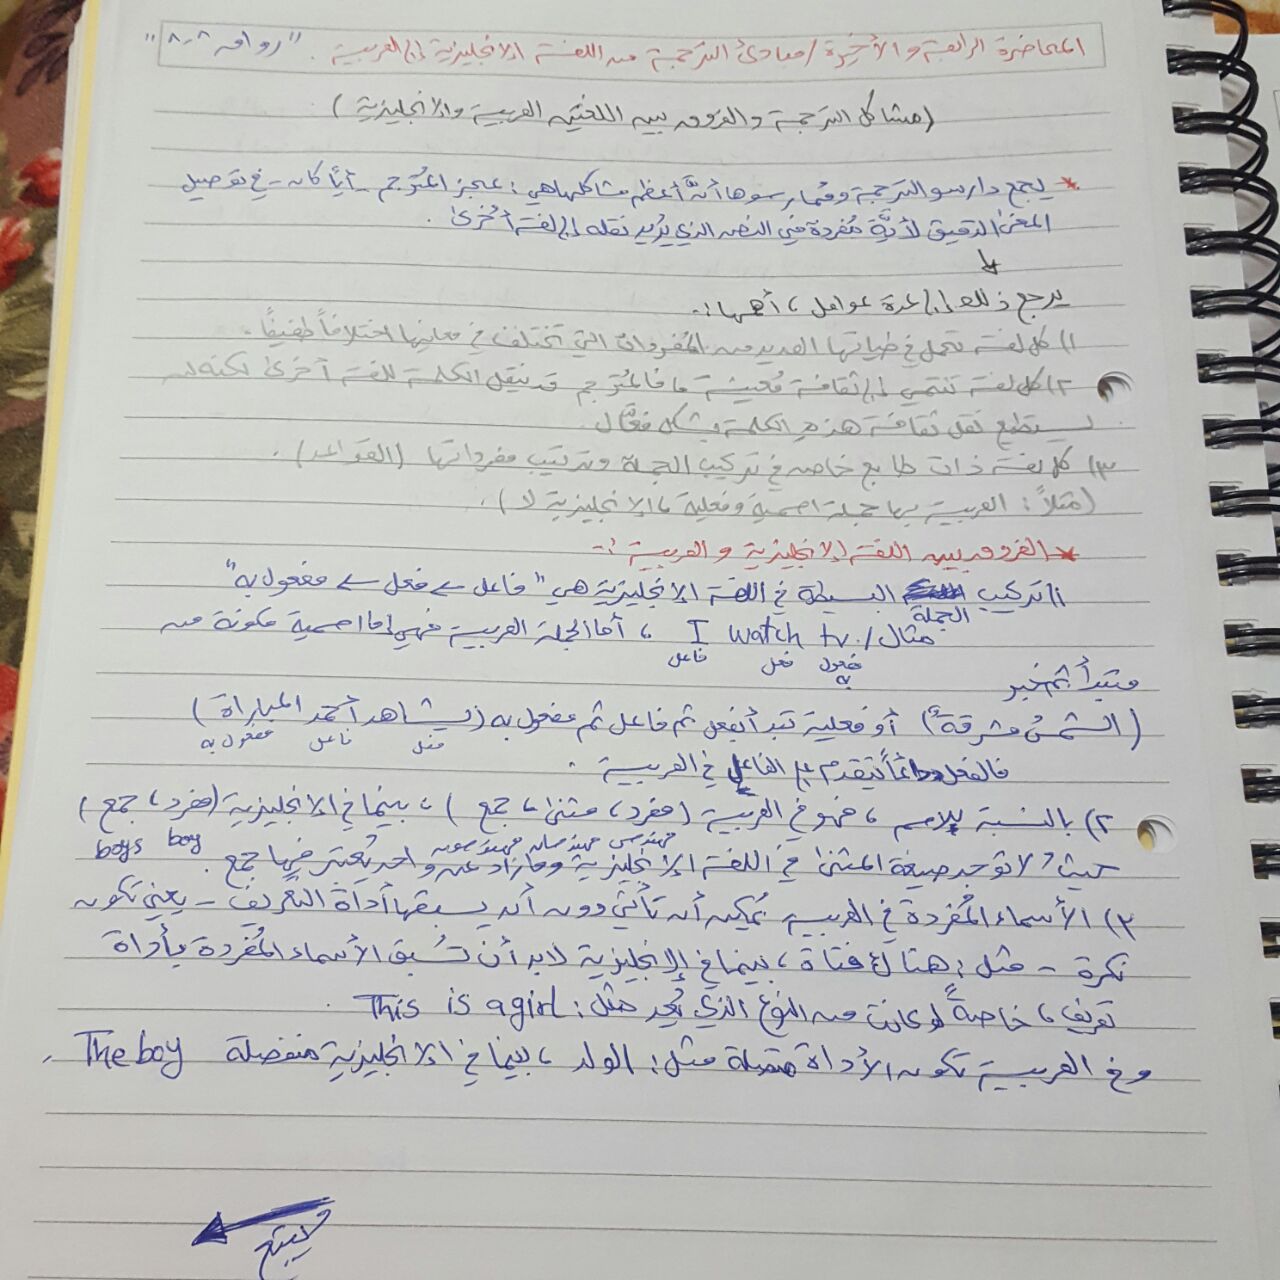 المحاضرة الرابعة والأخيرة / مبادئ الترجمة من اللغة الإنجليزية إلى العربية . "رواق ٨٠٨"
(مشاكل الترجمة والفروق بين اللغتين العربية والإنجليزية) .
* يجمع دارسو الترجمة وممارسوها أنَّ أعظم مشاكلها هي: عجز المُترجم - أيّاً كان - في توصيل
المعنى الدقيق لأيَّة مُفردة في النص الذي يُريد نقله إلى لغة أُخرى .
يرجع ذلك إلى عدة عوامل، أهمها :-
١) كل لغة تحمل في طياتها العديد من المُفردات التي تختلف في معانيها اختلافاً طفيفاً .
٢) كل لغة تنتمي إلى ثقافة مُعينة ما فالمُترجم قد ينقل الكلمة للغة أخرى لكنه لا
يستطيع نقل ثقافة هذه الكلمة بشكل فعَّال .
٣) كل لغة ذات طابع خاص في تركيب الجملة وترتيب مفرداتها (القواعد) .
(مثلاً: العربية بها جملة اسمية وفعلية، الإنجليزية لا) .
* الفروق بين اللغة الإنجليزية والعربية :-
١) تركيب الجملة البسيطة في اللغة الإنجليزية هي "فاعل ← فعل ← مفعول به"
مثال / I watch tv. ، أما الجملة العربية فهي إما اسمية مكونة من
فاعل فعل مفعول به
مبتدأ ثم خبر
(الشمسُ مشرقةٌ) أو فعلية تبدأ بفعل ثم فاعل ثم مفعول به (يشاهد أحمد المباراة)
فعل فاعل مفعول به
فالفعل دائماً يتقدم على الفاعل في العربية .
٢) بالنسبة للاسم ، فهو في العربية (مفرد، مثنى، جمع) ، بينما في الإنجليزية (مفرد، جمع)
مهندس مهندسان مهندسون boy boys
حيثُ لا توجد صيغة المثنى في اللغة الإنجليزية وما زاد عن واحد يُعتبر فيها جمع .
٣) الأسماء المُفردة في العربية يُمكن أن تأتي دون أن يسبقها أداة التعريف - يعني تكون
نكرة - مثل: هناك فتاة ، بينما في الإنجليزية لابد أن تُسبق الأسماء المُفردة بأداة
تعريف ، خاصةً لو كانت من النوع الذي يُعد مثل: This is a girl .
وفي العربية تكون الأداة متصلة مثل: الولد ، بينما في الإنجليزية منفصلة The boy .
يتبع